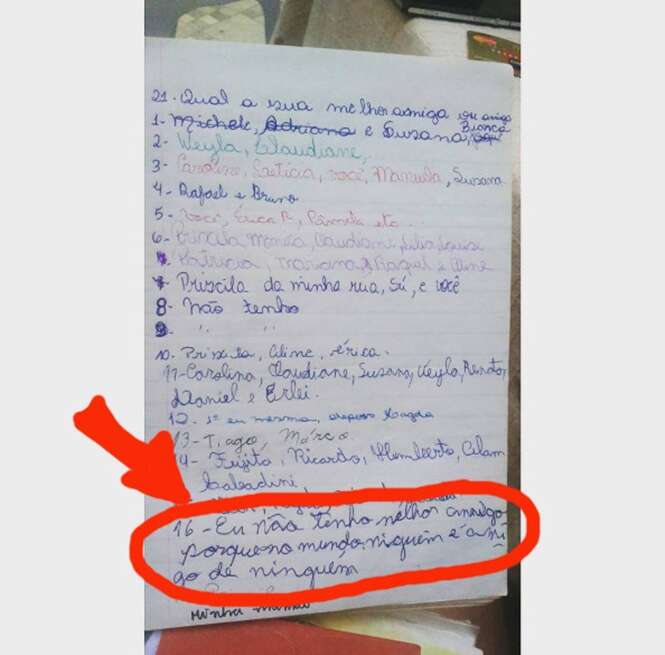 21. Qual a sua melhor amiga ou amigo
1- Michele, Adriana e Susana, Bianca
2- Keyla, Claudiane,
3- Caroline, Laeticia, você, Manuela, Susana
4- Rafael e Bruno
5- você, Érica R, etc...
6- Priscila Claudiane,
Patricia, Mariana, Raquel e Aline
7- Priscila da minha rua, Sú, e você
8- não tenho
9- " "
10- Priscila, Aline, Érica.
11- Carolina, Claudiane, Susana, Keyla, Renato,
Daniel e Erlei.
12- 1º eu mesma,
13- Tiago, Márcio
14- Fujita, Ricardo, Humberto,
16- Eu não tenho melhor amigo
porque no mundo niguem é ami
go de ninguém
Minha